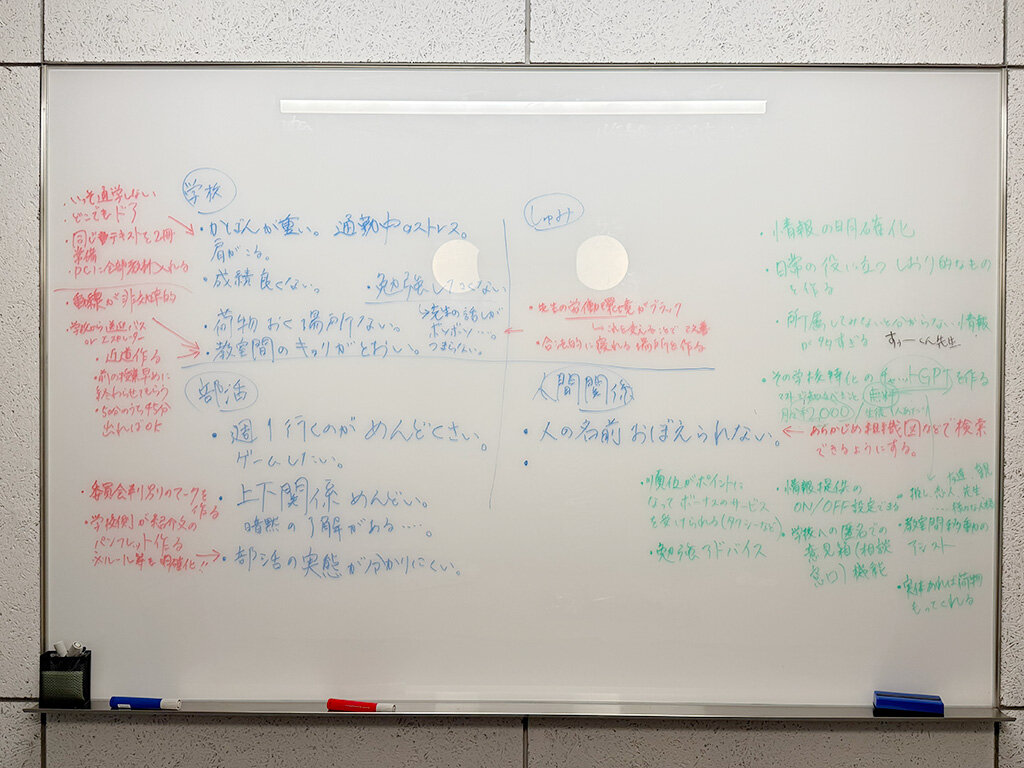 ・いっそ通学しない
・どこでもドア
・同じテキストを2冊
常備
・PCに全部教科入れる
・動線が非効率的
・学校から送迎バス
or エスカレーター
・近道作る
・前の授業早めに
終わらせてもらう
・50分のうち45分
出ればOK
学校
・かばんが重い。 通勤中のストレス。
肩がこる。
・成績良くない。
・勉強したくない
→先生の話しが
ポンポン....
つまらない。
・荷物おく場所ない。
・教室間のきょりがとおい。
しゅみ
・先生の労働環境がブラック
これを変えることで改善
・合法的に寝れる場所を作る
部活
・週1行くのがめんどくさい。
ゲームしたい。
・上下関係めんどい。
暗黙の了解がある....
・部活の実態が分かりにくい。
・委員会判別のマークを
作る
・学校側が紹介文の
パンフレット作る
※ルール等も明確化!!
人間関係
・人の名前おぼえられない。
・
← あらかじめ組織図などで検索
できるようにする。
・情報の明確化
・日常の役に立つ しおり的なもの
を作る
・所属してみないと分からない情報
が多すぎる
すぅーくん先生
・その学校特化のチャットGPTを作る
無料
月額¥2,000/生徒(1人あたり)
・順位がポイントに
なってボーナスのサービス
を受けられる(タクシーなど)
・勉強アドバイス
・情報提供の
ON/OFF設定できる
・学校への匿名での
意見箱(相談
窓口)機能
友達、親
推し、恋人、先生
・教室間移動の
アシスト
・実体あれば荷物
もってくれる